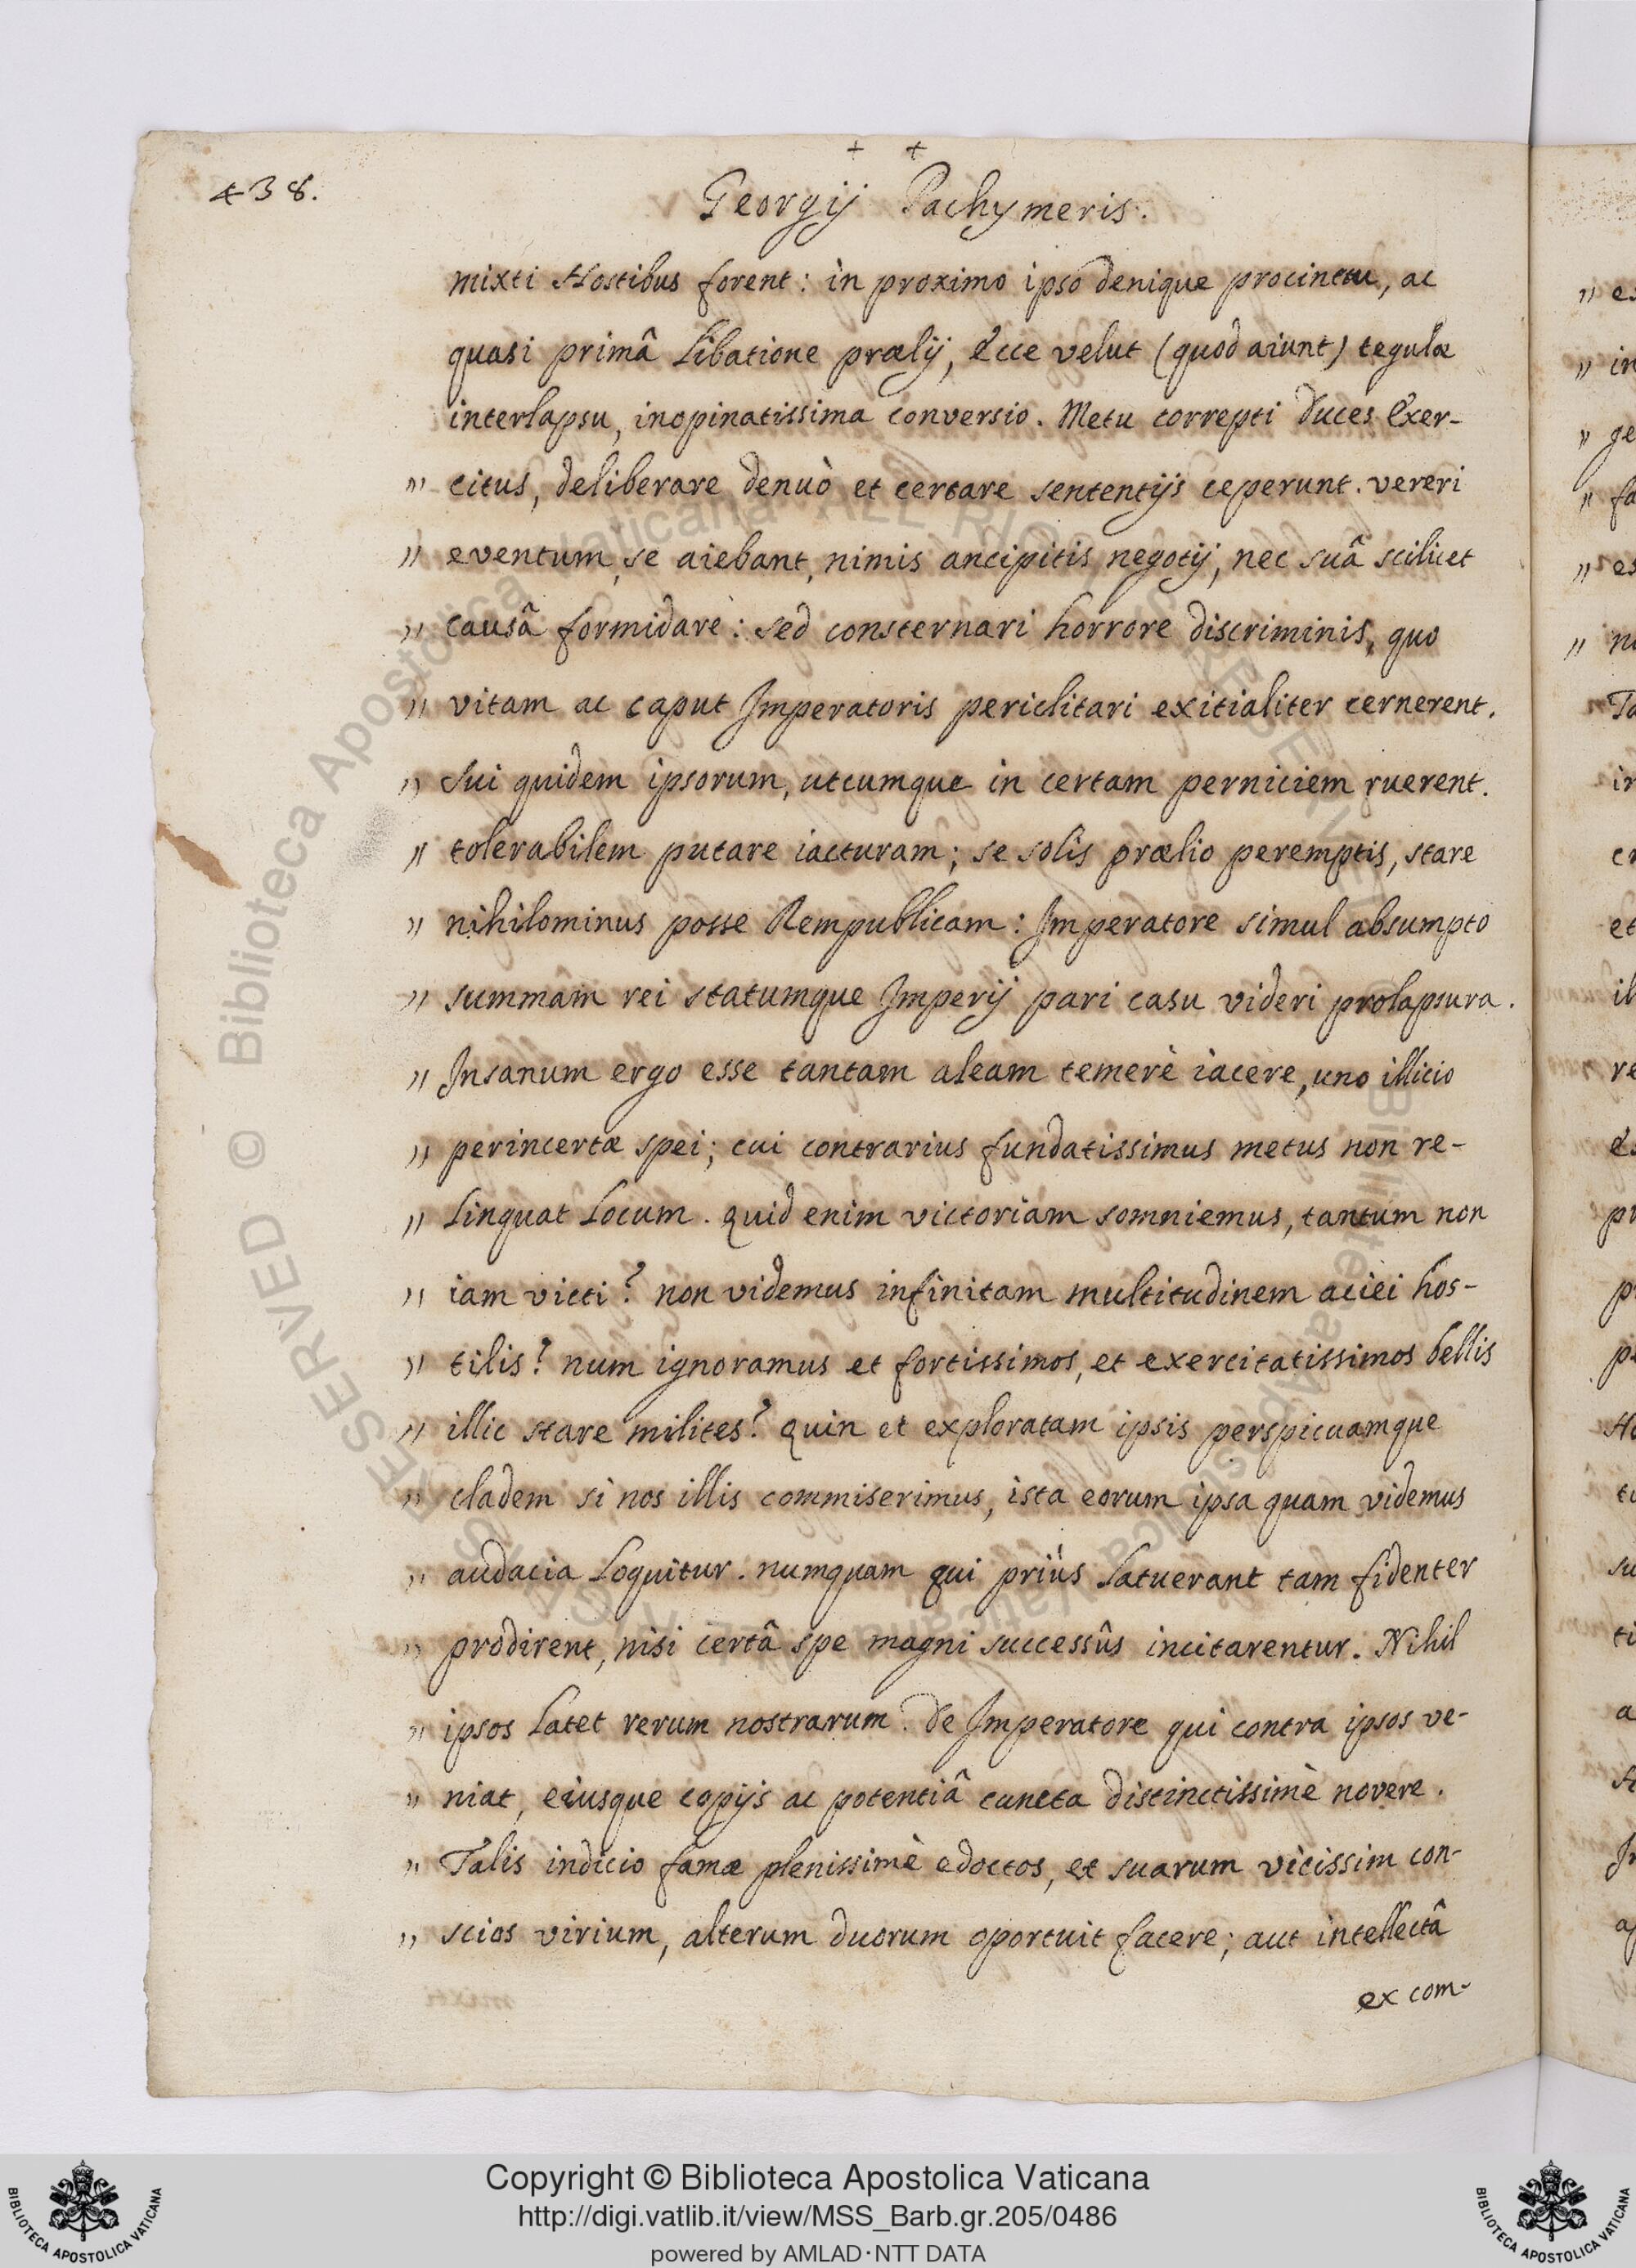 438.
Georgij Pachymeris.
mixti Hostibus forent: in proximo ipso denique procinctu, ac
quasi primâ Libatione prælij, Ecce velut (quod aiunt) tegulæ
interlapsu, inopinatissima conversio. Metu correpti Duces Exer-
" citus, deliberare denuò et certare sententijs ceperunt. vereri
" eventum, se aiebant, nimis ancipitis negotij, nec suâ scilicet
" causâ formidare: sed consternari horrore discriminis, quo
" vitam ac caput Imperatoris periclitari exitialiter cernerent.
" Sui quidem ipsorum, utcumque in certam perniciem ruerent.
" tolerabilem putare iacturam; se solis prælio peremptis, stare
" nihilominus posse Rempublicam: Imperatore simul absumpto
" summam rei statumque Imperij pari casu videri prolapsura.
" Insanum ergo esse tantam aleam temerè iacere, uno illicio
" perincertæ spei; cui contrarius fundatissimus metus non re-
" Linquat Locum. quid enim victoriam somniemus, tantum non
" iam victi? non videmus infinitam multitudinem aciei hos-
" tilis? num ignoramus et fortissimos, et exercitatissimos bellis
" illic stare milites? quin et exploratam ipsis perspicuamque
" cladem si nos illis commiserimus, ista eorum ipsa quam videmus
" audacia Loquitur. numquam qui priùs Latuerant tam fidenter
" prodirent, nisi certâ spe magni successûs incitarentur. Nihil
" ipsos Latet rerum nostrarum. De Imperatore qui contra ipsos ve-
" niat, eiusque copijs ac potentiâ cuncta distinctissimè novere.
" Talis indicio famæ plenissimè edoctos, et suarum vicissim con-
" scios virium, alterum duorum oportuit facere; aut intellectâ
ex com-
Copyright © Biblioteca Apostolica Vaticana
http://digi.vatlib.it/view/MSS_Barb.gr.205/0486
powered by AMLAD·NTT DATA
BIBLIOTECA APOSTOLICA VATICANA
BIBLIOTECA APOSTOLICA VATICANA